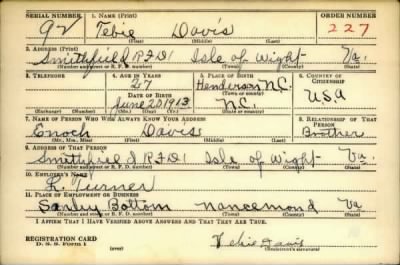 SERIAL NUMBER 1. NAME (Print) ORDER NUMBER
92 Tebie Davis 227
(First) (Middle) (Last)
2. ADDRESS (Print)
Smithfield R.F.D.1 Isle of Wight Va.
(Number and street or R. F. D. number) (Town) (County) (State)
3. TELEPHONE 4. AGE IN YEARS 5. PLACE OF BIRTH 6. COUNTRY OF CITIZENSHIP
27 Henderson N.C.
DATE OF BIRTH (Town or county)
June 20 1913 N.C. U.S.A
(Exchange) (Number) (Mo.) (Day) (Yr.) (State or country)
7. NAME OF PERSON WHO WILL ALWAYS KNOW YOUR ADDRESS 8. RELATIONSHIP OF THAT PERSON
Enoch Davis Brother
(Mr., Mrs., Miss) (First) (Middle) (Last)
9. ADDRESS OF THAT PERSON
Smithfield R.F.D.1 Isle of Wight Va.
(Number and street or R. F. D. number) (Town) (County) (State)
10. EMPLOYER'S NAME
L. Turner
11. PLACE OF EMPLOYMENT OR BUSINESS
Bottom Nancemond Va
(Number and street or R. F. D. number) (Town) (County) (State)
I AFFIRM THAT I HAVE VERIFIED ABOVE ANSWERS AND THAT THEY ARE TRUE.
REGISTRATION CARD
D. S. S. Form 1 (over) Tebie Davis
(Registrant's signature)